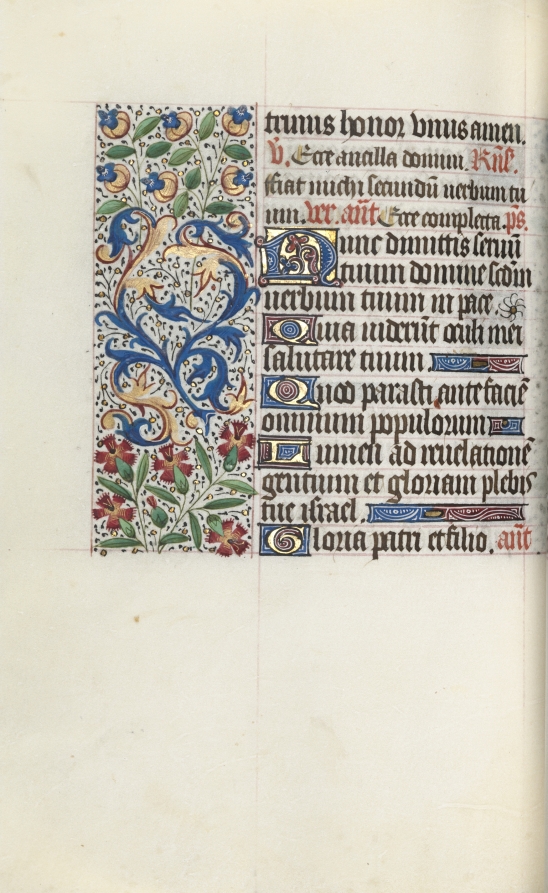 trinus honor vnus amen.
V̄. Ecce ancilla domini. Rn̄s̄.
fiat michi secundū uerbum tu
um. ver. an̄t Ecce completa p̄s.
Nunc dimittis seruū
tuum domine scd̄m
uerbum tuum in pace
Quia uiderūt oculi mei
salutare tuum
Quod parasti ante faciē
omnium populorum
Lumen ad reuelationē
gentium et gloriam plebis
tue israel.
Gloria patri et filio. an̄t